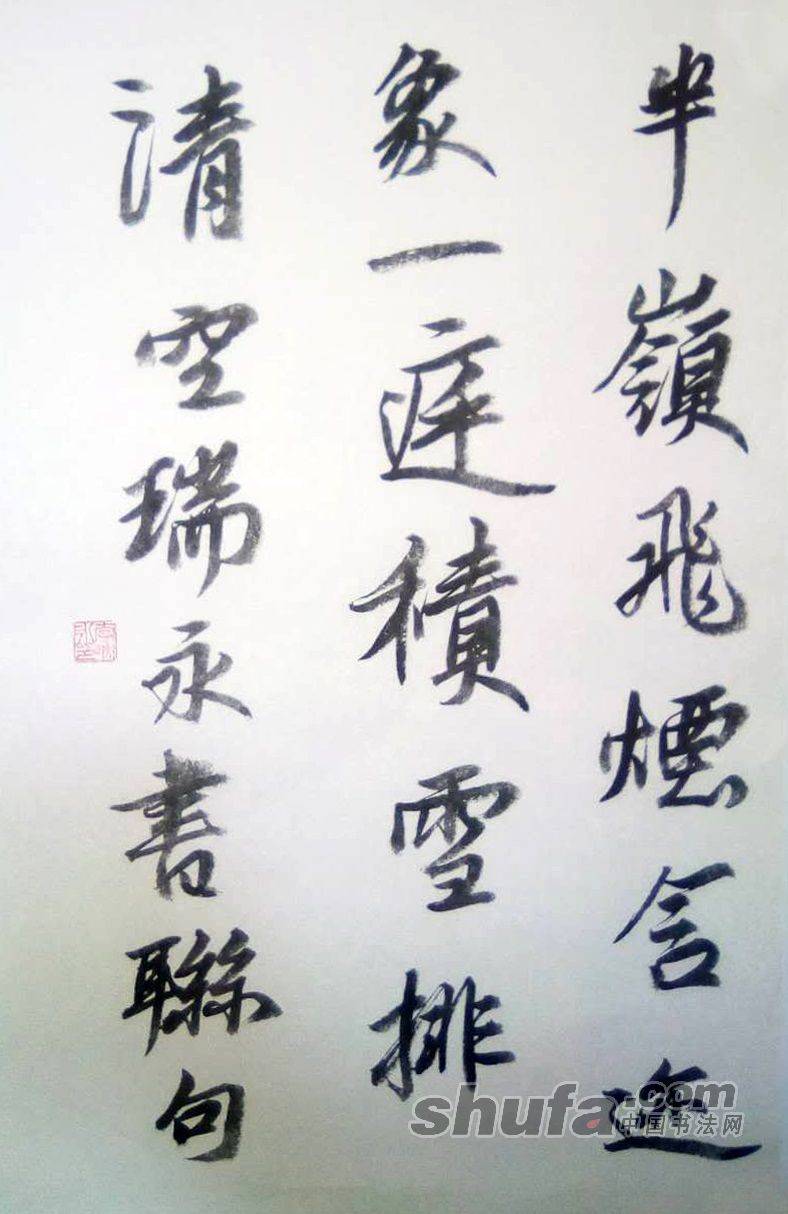 半嶺飛煙含
象一庭積雪排
清空瑞永書聯句
shufa.com
中国书法网